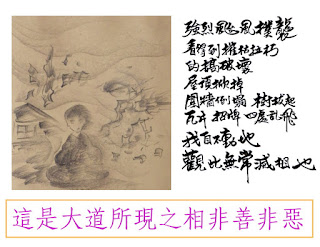 強烈颱風撲襲
看得到摧枯拉朽
的搞破壞
屋頂掀掉
圍牆倒塌 樹拔起
瓦片 招牌 四處亂飛
我自不動也
觀此無常滅相也
這是大道所現之相非善非惡